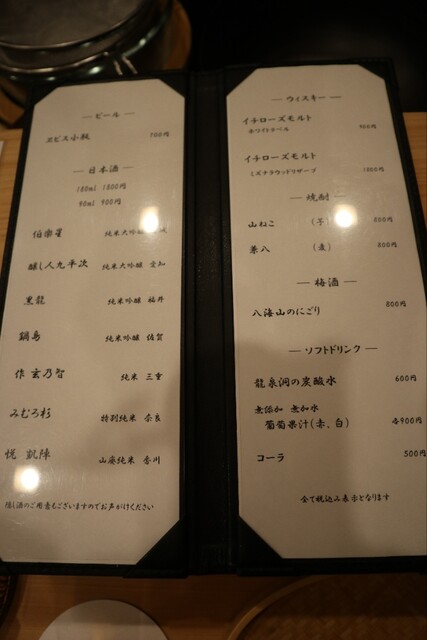 ― ビール ―
ヱビス小瓶 700円
― 日本酒 ―
180ml 1800円
90ml 900円
伯楽星 純米大吟醸
醸し人九平次 純米大吟醸 愛知
黒龍 純米吟醸 福井
鍋島 純米吟醸 佐賀
作 玄乃智 純米 三重
みむろ杉 特別純米 奈良
悦 凱陣 山廃純米 香川
隠し酒のご用意もございますのでお声がけください
― ウィスキー ―
イチローズモルト
ホワイトラベル
イチローズモルト
ミズナラウッドリザーブ 1800円
― 焼酎 ―
山ねこ (芋) 800円
兼八 (麦) 800円
― 梅酒 ―
八海山のにごり 800円
― ソフトドリンク ―
龍泉洞の炭酸水 600円
無添加 無加水
葡萄果汁(赤、白) 各900円
コーラ 500円
全て税込み表示となります